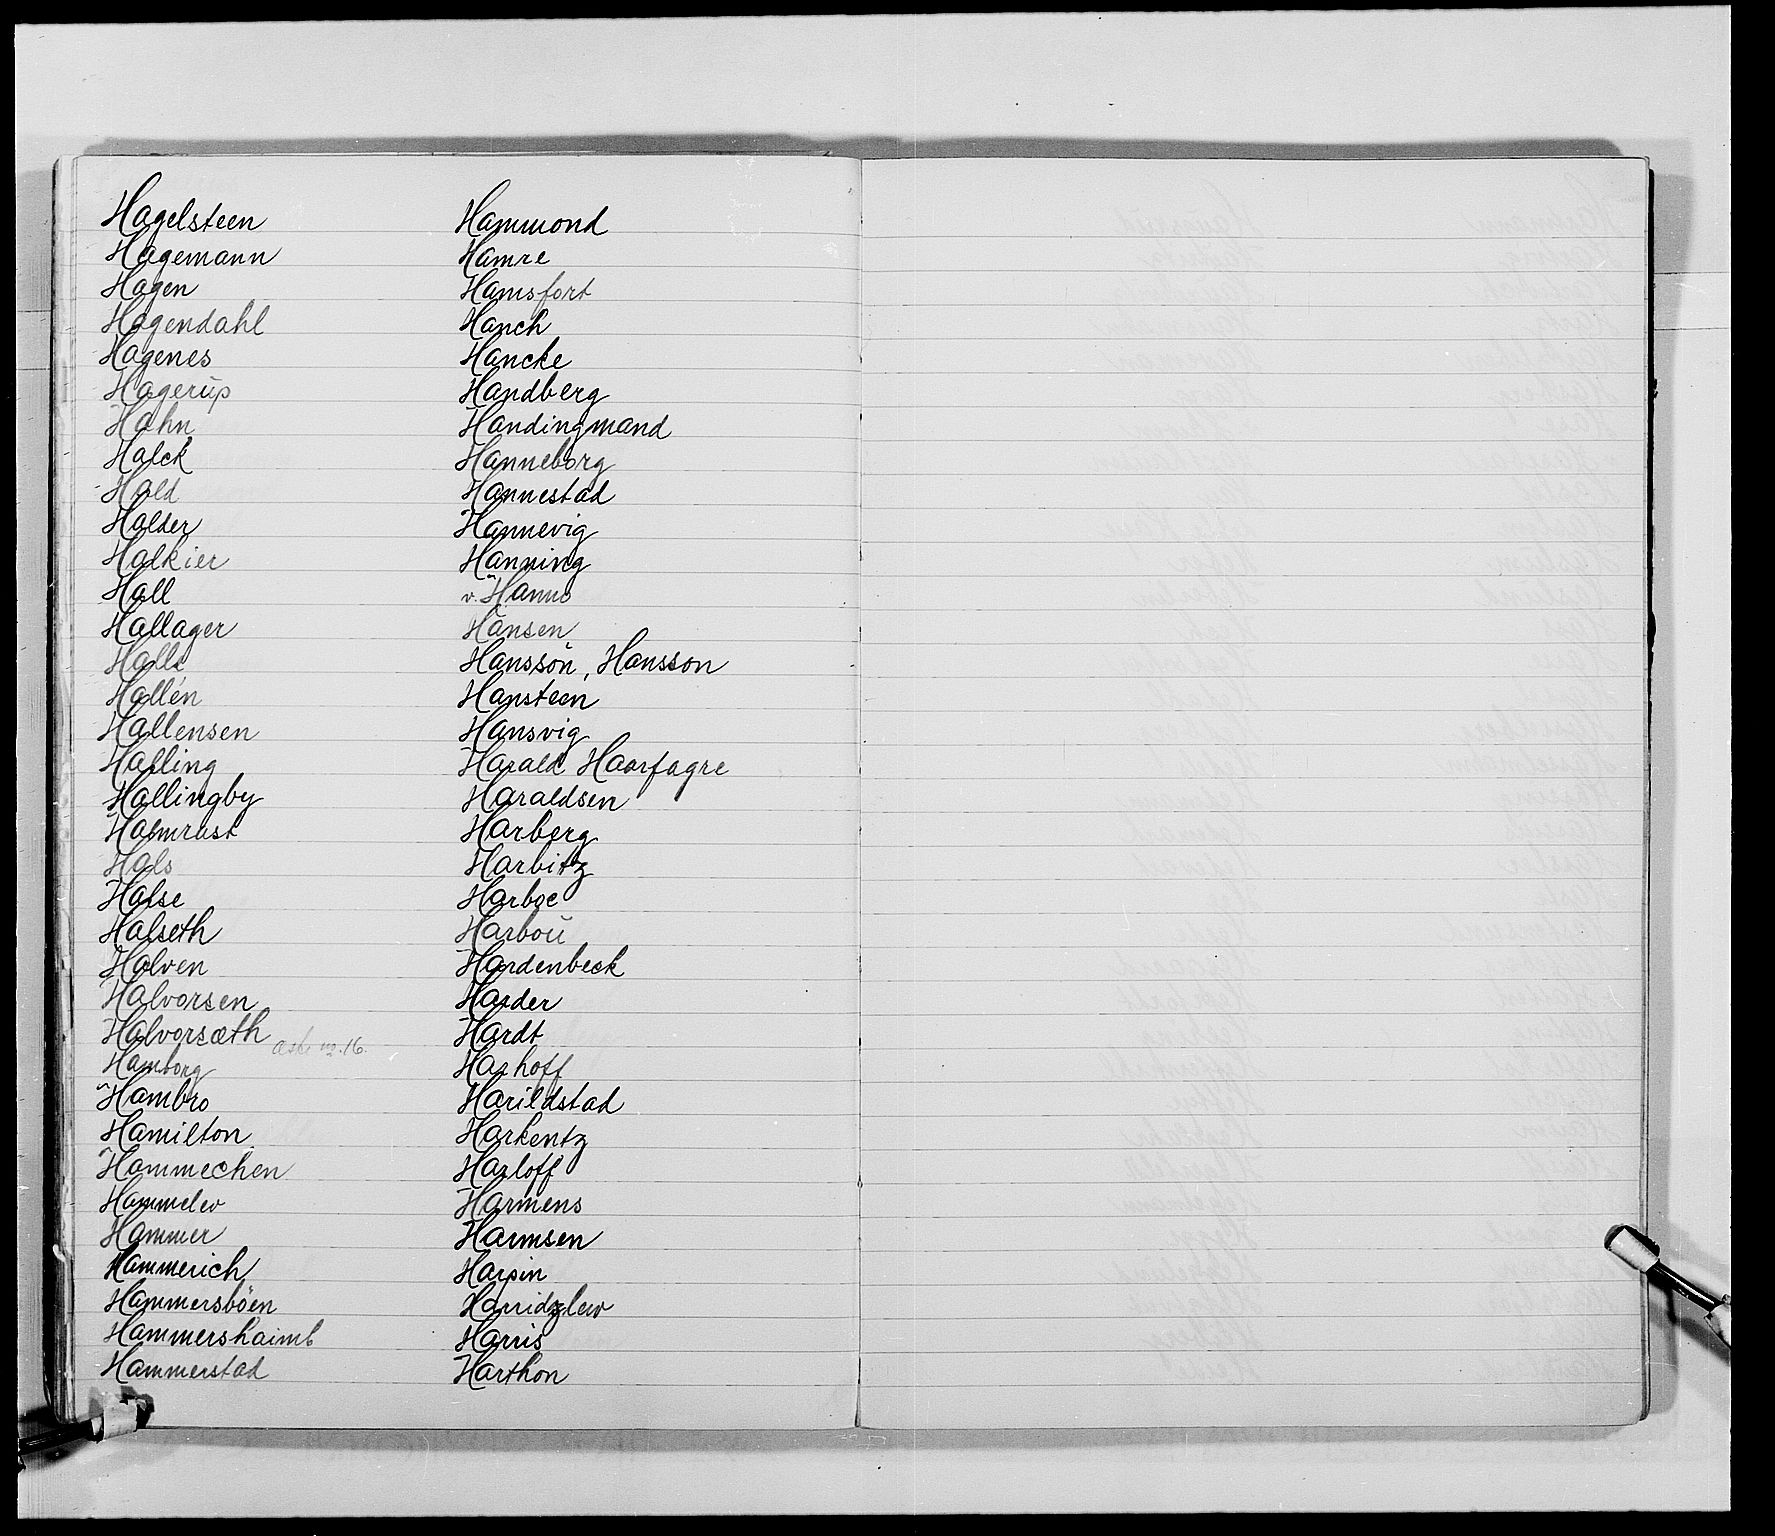 Hagelsteen
Hagemann
Hagen
Hagendahl
Hagenes
Hagerup
Hahn
Halck
Hald
Halder
Halkier
Hall
Hallager
Halle
Hallén
Hallensen
Halling
Hallingby
Halmrast
Hals
Halse
Halseth
Halven
Halvorsen
Halvorsæth
Hamborg
Hambro
Hamilton
Hammechen
Hammelev
Hammer
Hammerich
Hammersböen
Hammershaimb
Hammerstad
Hammond
Hamre
Hamsfort
Hanch
Hancke
Handberg
Handingmand
Hanneborg
Hannestad
Hannevig
Hanning
v. Hanno
Hansen
Hanssön, Hansson
Hansteen
Hansvig
Harald Haarfagre
Haraldsen
Harberg
Harbitz
Harboe
Harboü
Hardenbeck
Harder
Hardt
Harhoff
Harildstad
Harkentz
Harloff
Harmens
Harmsen
Harpin
Harridzlew
Harris
Harthon